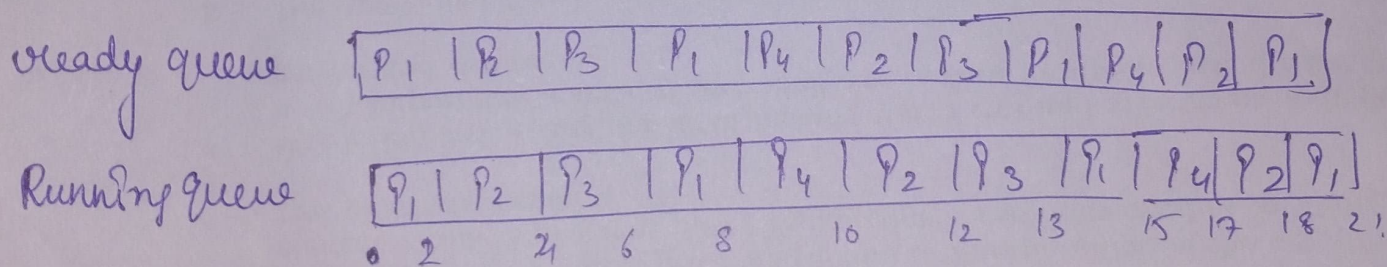 ready queue | P1 | P2 | P3 | P1 | P4 | P2 | P3 | P1 | P4 | P2 | P1 |
Running queue | P1 | P2 | P3 | P1 | P4 | P2 | P3 | P1 | P4 | P2 | P1 |
0 2 4 6 8 10 12 13 15 17 18